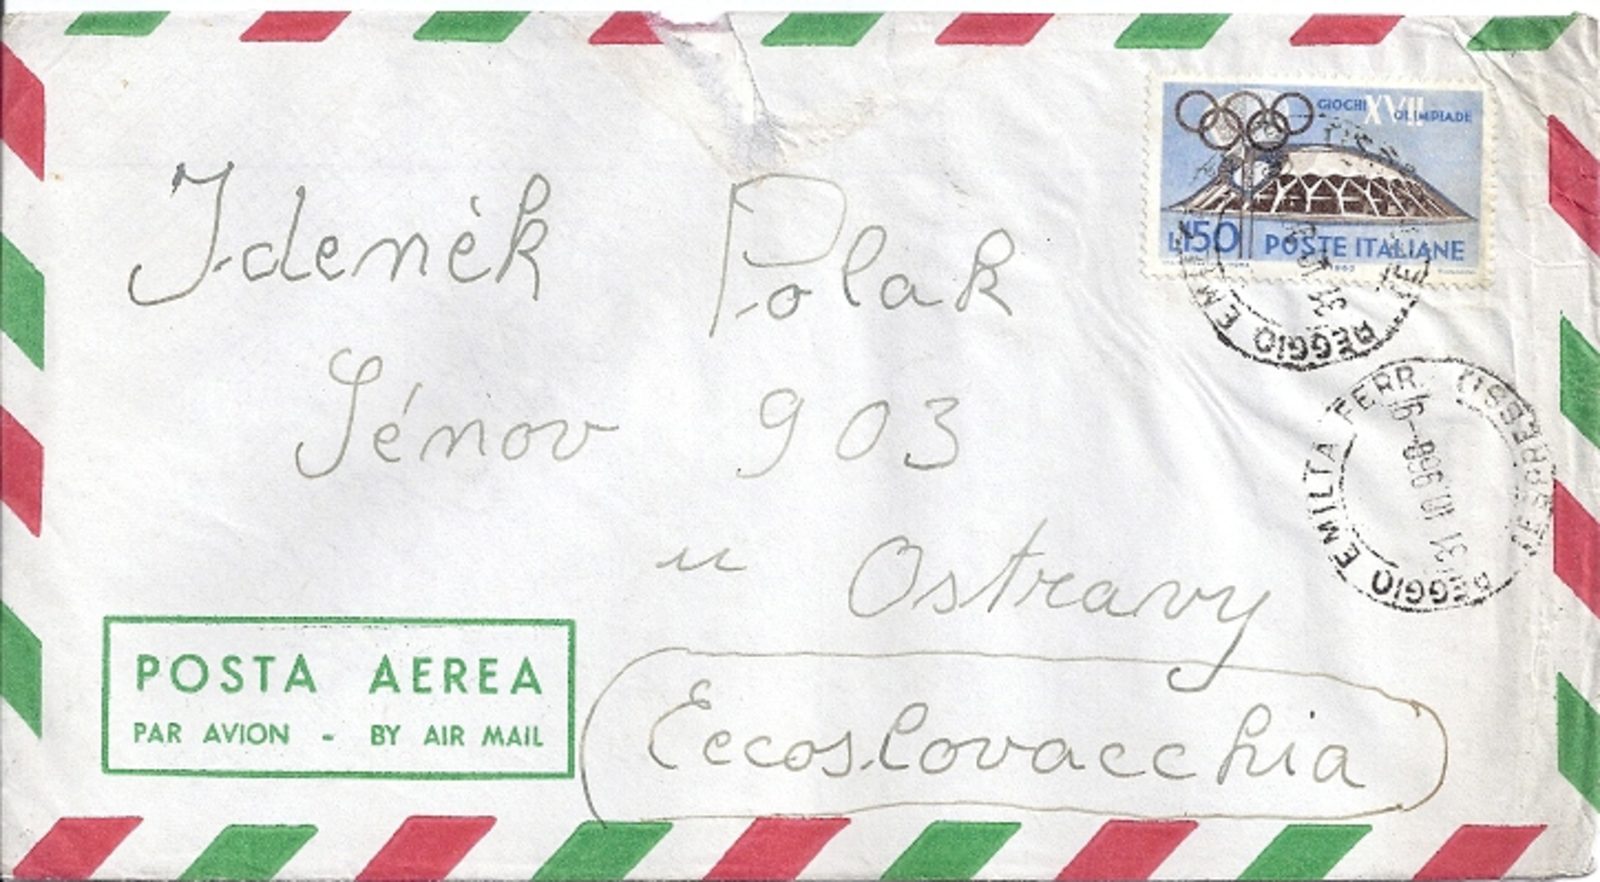 GIOCHI XVII OLIMPIADE
L.150 POSTE ITALIANE
1960
REGGIO EMILIA
REGGIO EMILIA FERR. (ESPRESSI)
31.10.968-9
Idenèk Polak
Sénov 903
u Ostravy
Eecoslovacchia
POSTA AEREA
PAR AVION - BY AIR MAIL